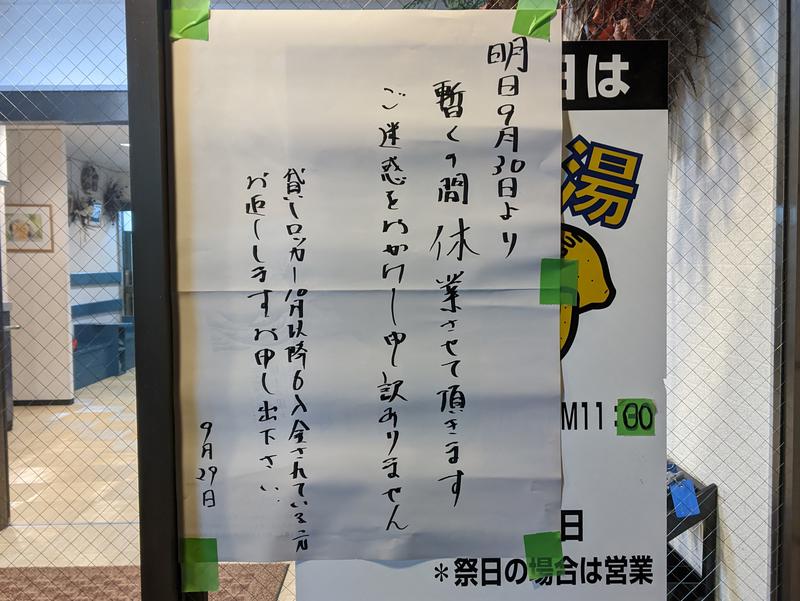 明日9月30日より
暫くの間休業させて頂きます
ご迷惑をおかけし申訳ありません
貸しロッカー10月以降6入金されている方
お返ししますお申し出下さい。
9月29日
日は
湯
M11:00
日
＊祭日の場合は営業